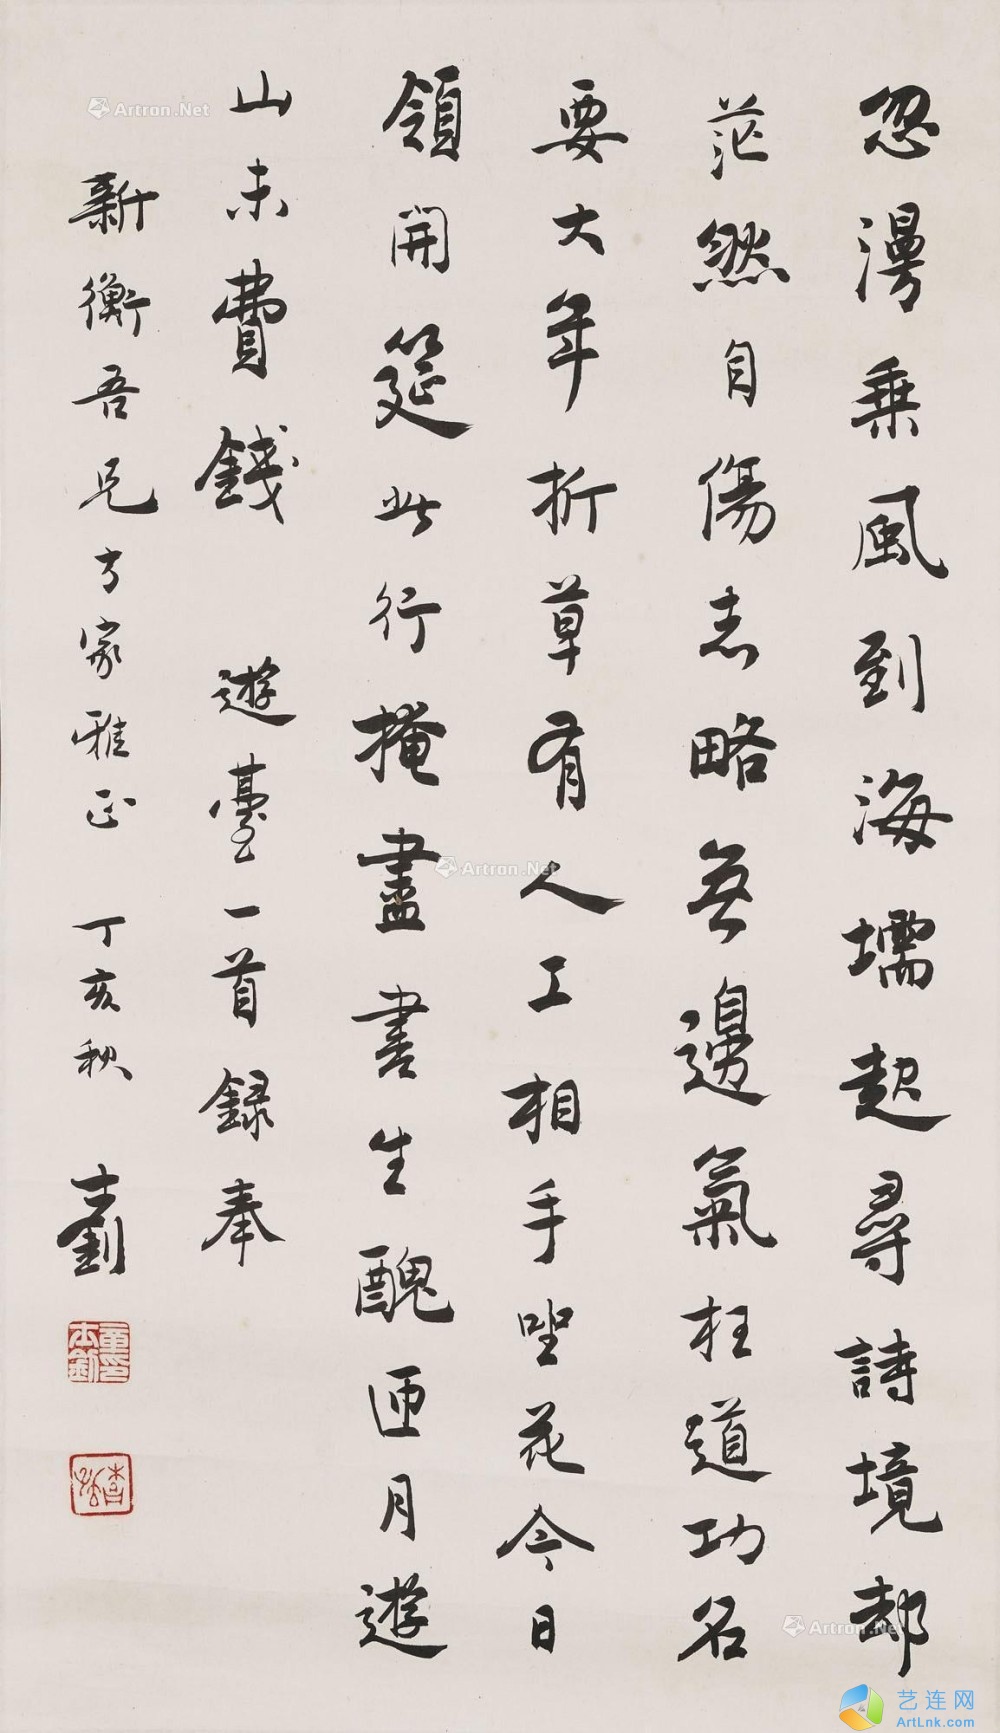 忽漫乘風到海壖起尋詩境却
茫然自傷志略無邊氣枉道功名
要大年折草有人工相手坐花今日
領開筵此行掩盡書生醜匝月遊
山未費錢 遊臺一首錄奉
新衡吾兄方家雅正 丁亥秋 士釗
Artron.Net
Artron.Net
Artron.Net
艺连网
ArtLnk.com